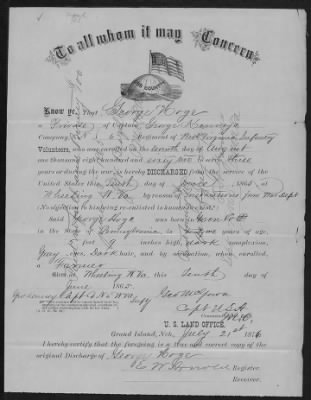 To all whom it may Concern
Know ye, That George Hoge
a Private of Captain George
Company, 6 Regiment of West Virginia Infantry
Volunteers, who was enrolled on the seventh day of August
one thousand eight hundred and sixty to serve three
years or during the war, is hereby DISCHARGED from the service of the
United States this Tenth day of June, 1865, at
Wheeling W. Va by reason of Instructions from War Dept
No objection to his being re-enlisted is known to exist.
Said George Hoge was born in
in the State of Pennsylvania is years of age,
feet 9 inches high, dark complexion,
Gray eyes, Dark hair, and by occupation, when enrolled,
a Farmer
Given at Wheeling W. Va. this Tenth day of
June 1865
Capt
Copy
Capt U.S.A
U. S. LAND OFFICE,
Grand Island, Neb. July 21st 1876
I hereby certify that the foregoing is a true and correct copy of the
original Discharge of George Hoge
Register.
Receiver.